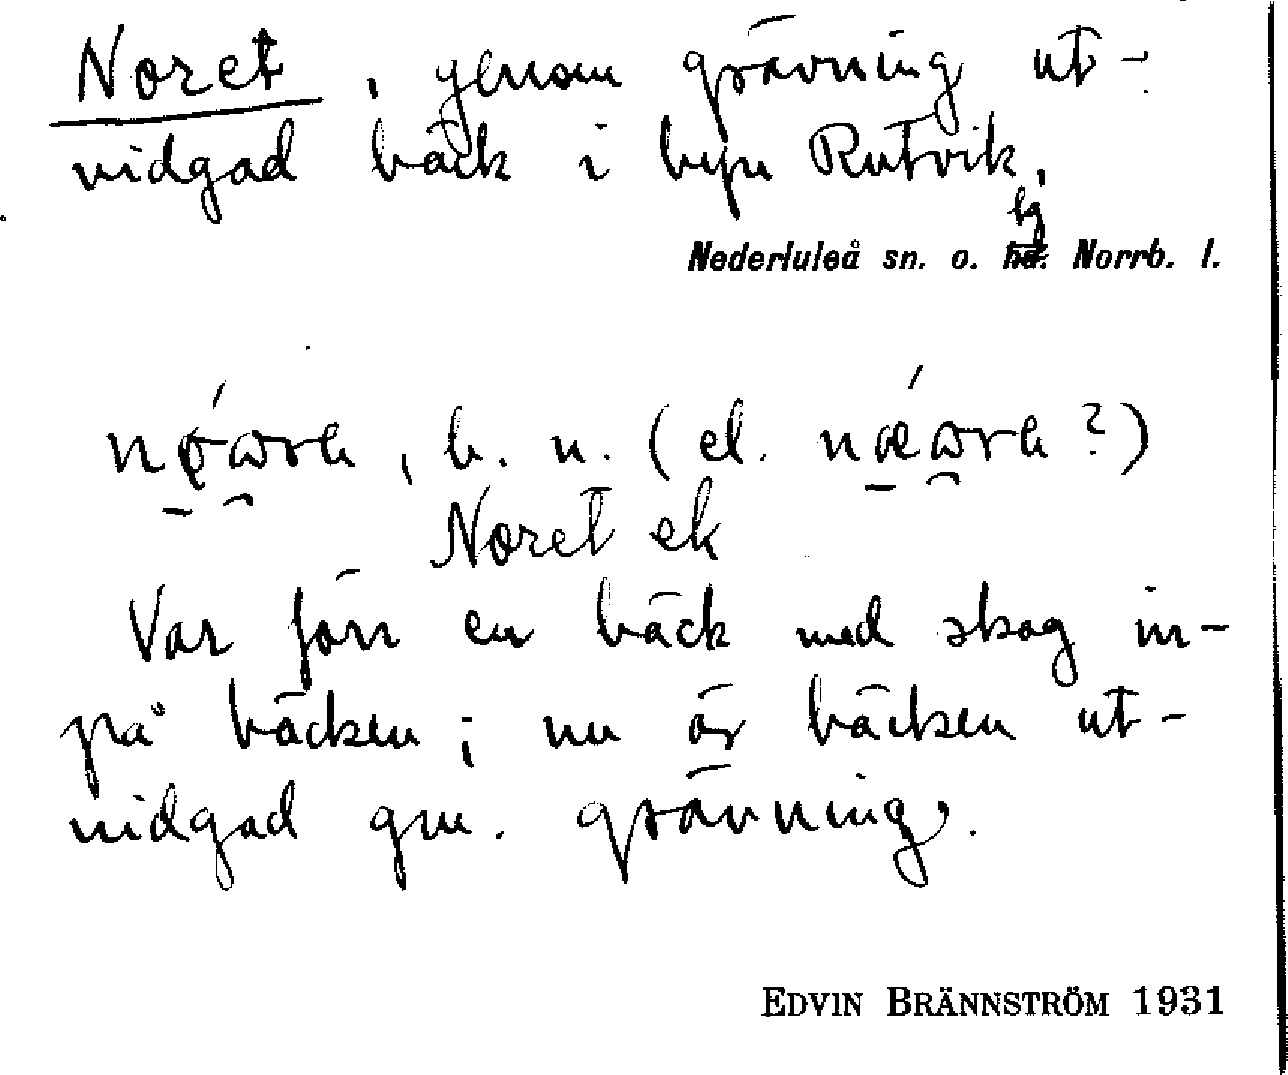 Noret, genom grävning ut-
vidgad bäck i byn Rutvik,
lg
Nederluleå sn. o. hd. Norrb. l.
b. n. (el.
Noret ek
Var förr en bäck med skog in-
på bäcken; nu är bäcken ut-
vidgad gm. grävning.
EDVIN BRÄNNSTRÖM 1931